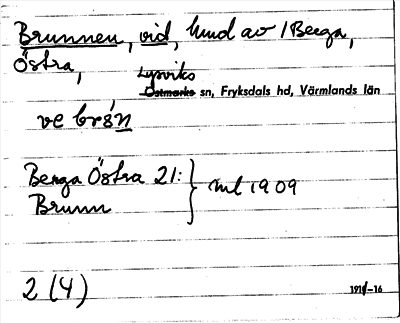 Brunnen, vid, hmd av /Berga,
Östra,
Lysviks
Östmarks sn, Fryksdals hd, Värmlands län
ve brö´n
Berga Östra 21:
Brunn
ml 1909
2 (4)
191-16